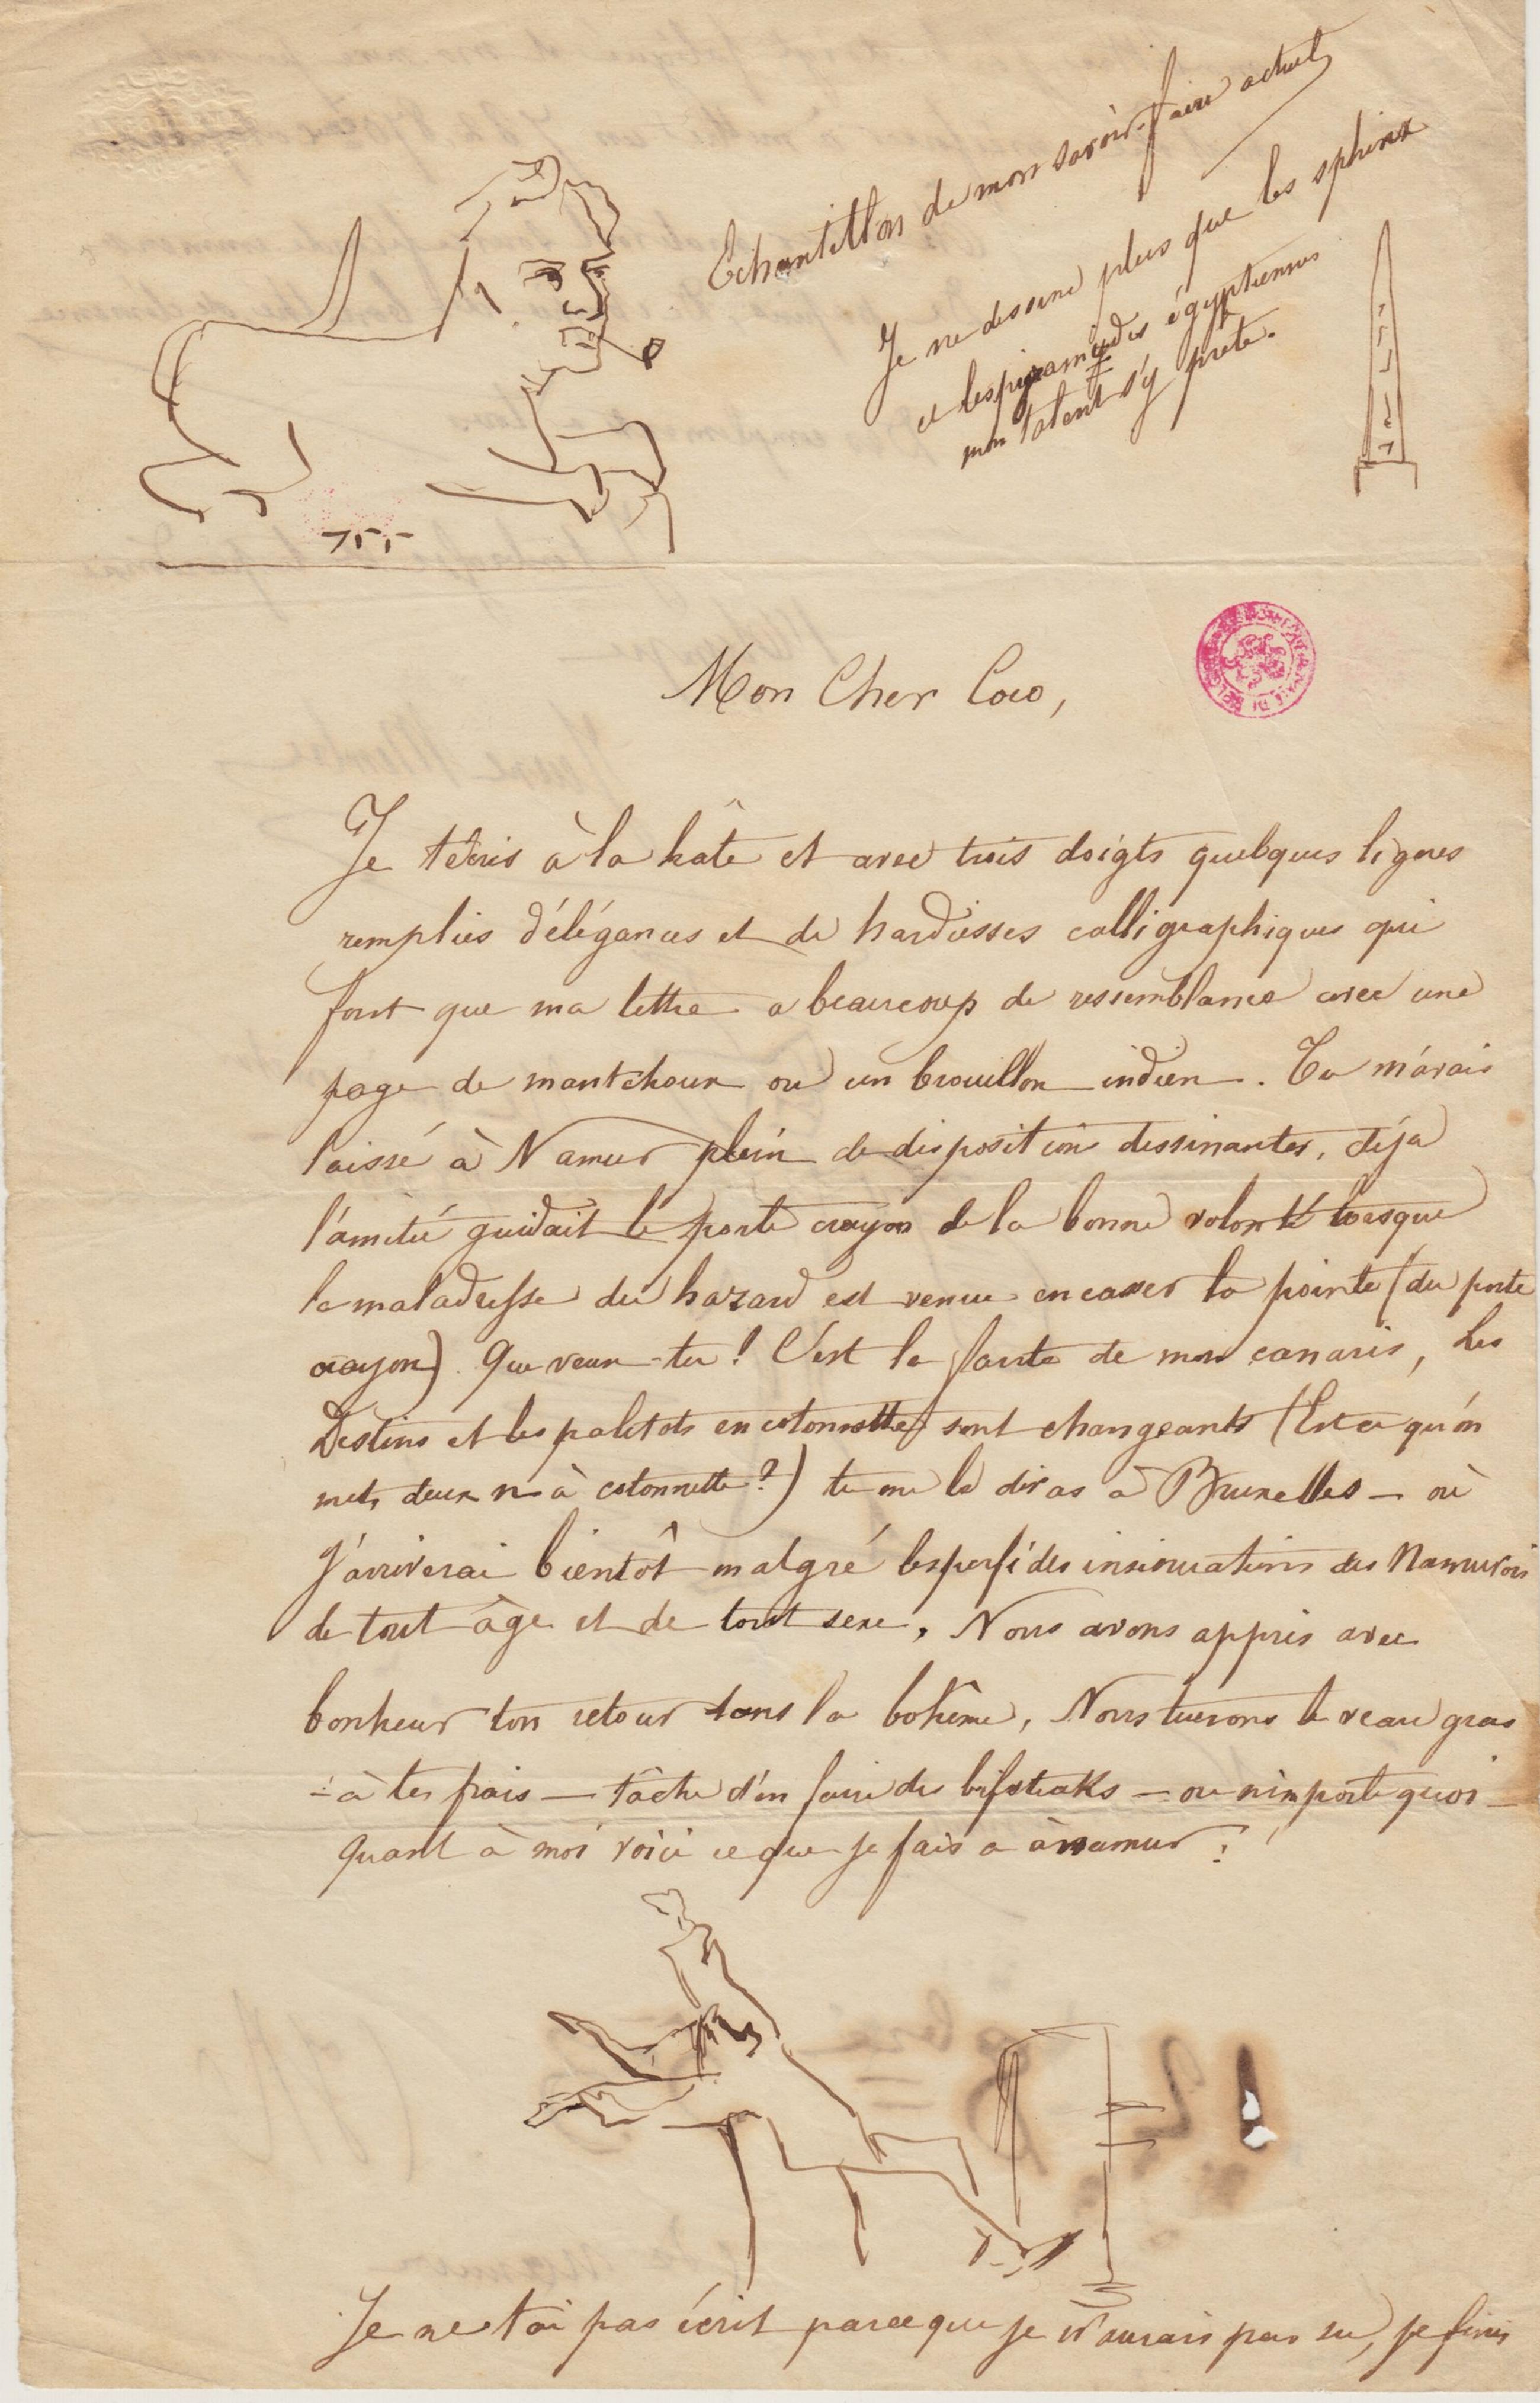 Echantillon de mon savoir-faire actuel
Je ne dessine plus que les sphinx
et les pyramydes égyptiennes
mon talent s'y prete.
Mon Cher Coco,
Je t'écris à la hâte et avec trois doigts quelques lignes
remplies d'élégances et de hardiesses calligraphiques qui
font que ma lettre a beaucoup de ressemblance avec une
page de mantchoux ou un brouillon indien. Tu m'avais
laissé à Namur plein de disposition dessinantes, déja
l'amitié guidait le porte crayon de la bonne volonté lorsque
la maladresse du hazard est venue en casser la pointe (du porte
crayon) que veux-tu! C'est la faute de mon canaris, les
Destins et les paletots en cotonnette sont changeants (Est ce qu'on
mets deux n à cotonnette?) tu me le diras à Bruxelles — où
J'arriverai bientôt malgré les perfides insinuations des Namurois
de tout âge et de tout sexe. Nous avons appris avec
bonheur ton retour dans la bohême, Nous tuerons le veau gras
- à tes frais — tâche d'en faire des bifsteaks — ou n'importe quoi —
quant à moi voici ce que je fais a à namur :
Je ne t'ai pas écrit parceque je n'aurais pas su, je finis